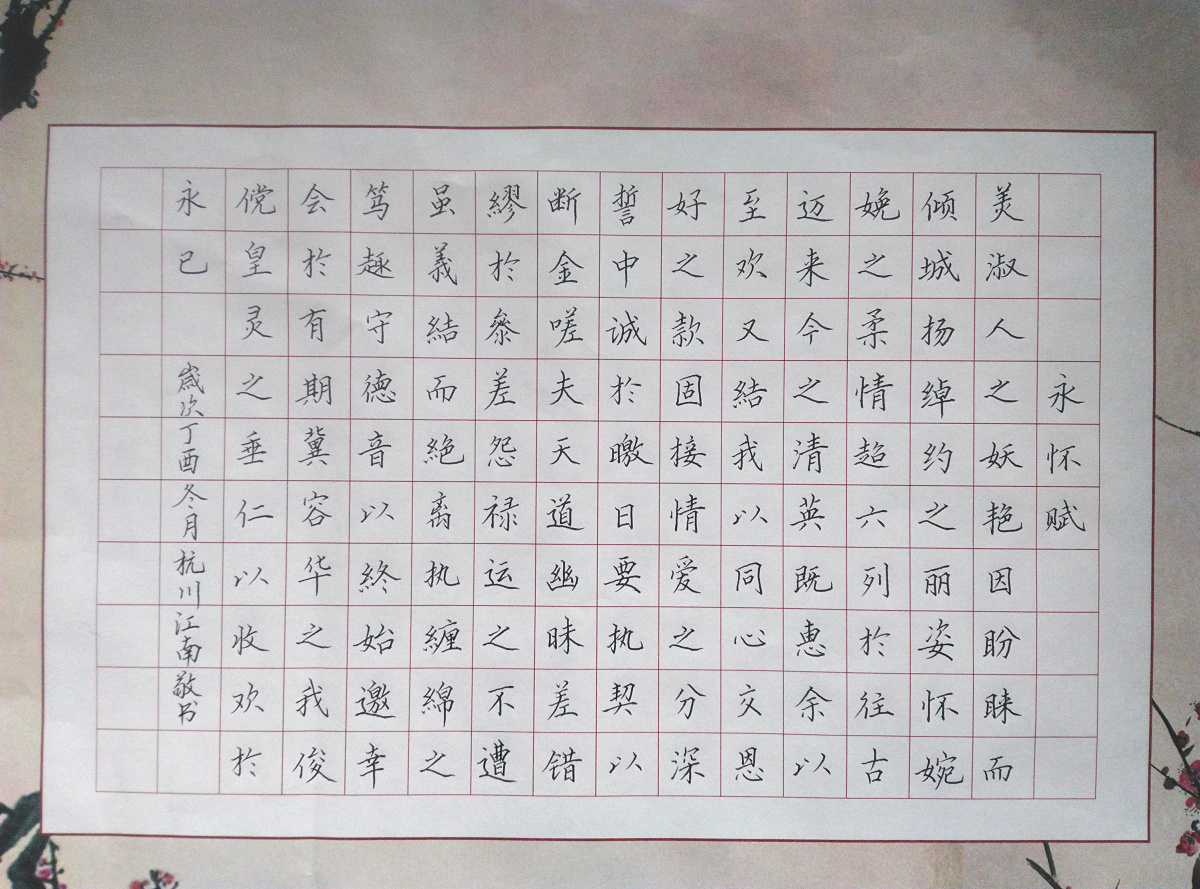 永怀赋
美淑人之妖艳因盼睐而
倾城扬绰约之丽姿怀婉
娩之柔情超六列於往古
迈来今之清英既惠余以
至欢又結我以同心交恩
好之款固接情爱之分深
誓中诚於曒日要执契以
断金嗟夫天道幽昧差错
繆於参差怨禄运之不遭
虽義結而絶离执纏綿之
笃趣守德音以終始邀幸
会於有期冀容华之我俊
傥皇灵之垂仁以收欢於
永已
歲次丁酉冬月杭川江南敬书